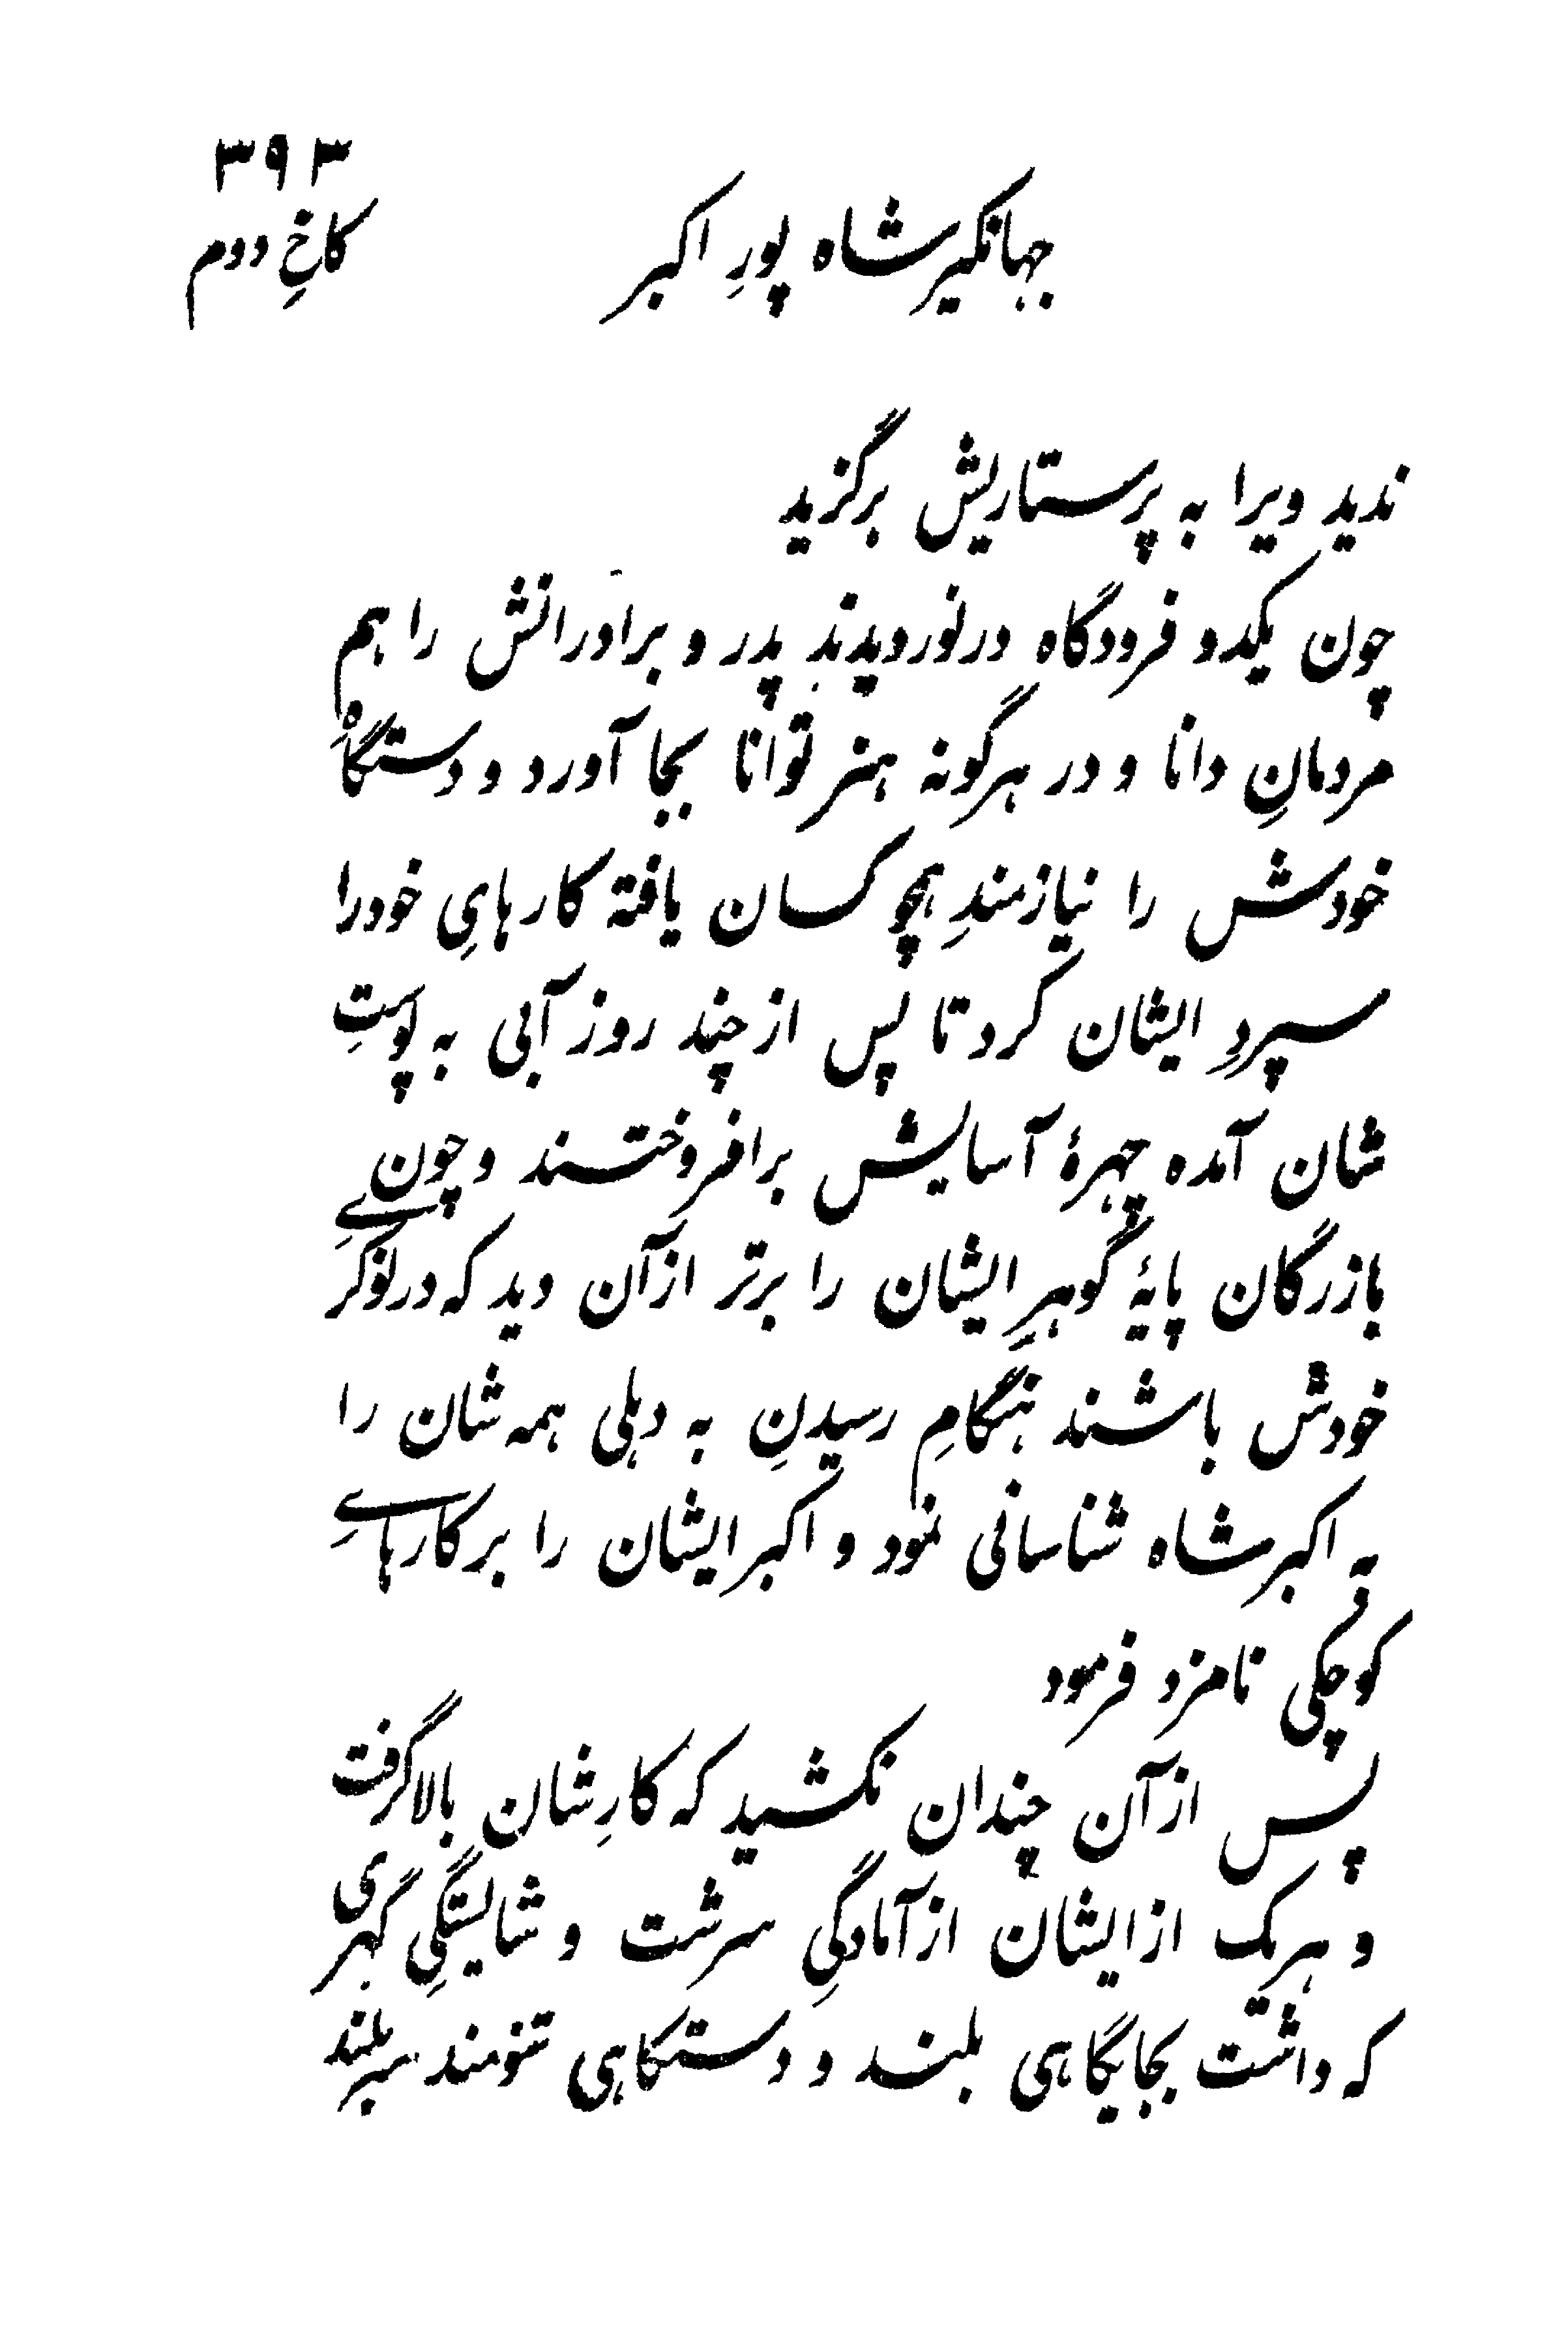 ۳۹۳
جهانگیرشاه پورِ اکبر
کاخِ دوم
ندید ویرا به پرستاریش برگزید
چون یکدو فرودگاه درنوردیدند پدر و برادرانش را هم
مردمانِ دانا و در هرگونه هنر توانا بجا آورد و دستگاهِ
خودش را نیازمندِ همچو کسان یافته کارهایِ خودرا
سپردِ ایشان کرد تا پس از چند روز آبی به پوستِ
شان آمده چهرهٔ آسایش برافروختند و چون
بازرگان پایهٔ گوهرِ ایشان را برتر ازآن دید که درنوکریِ
خودش باشند هنگامِ رسیدنِ به دهلی همه شان را
به اکبرشاه شناسانی نمود و اکبر ایشان را بر کارهایِ
کوچکی نامزد فرمود
پس ازآن چندان نکشید که کارِشان بالاگرفت
و هریک ازایشان ازآمادگیِ سرشت و شایستگیِ گهری
که داشت بجایگاهی بلند و دستگاهی تنومند سربلند